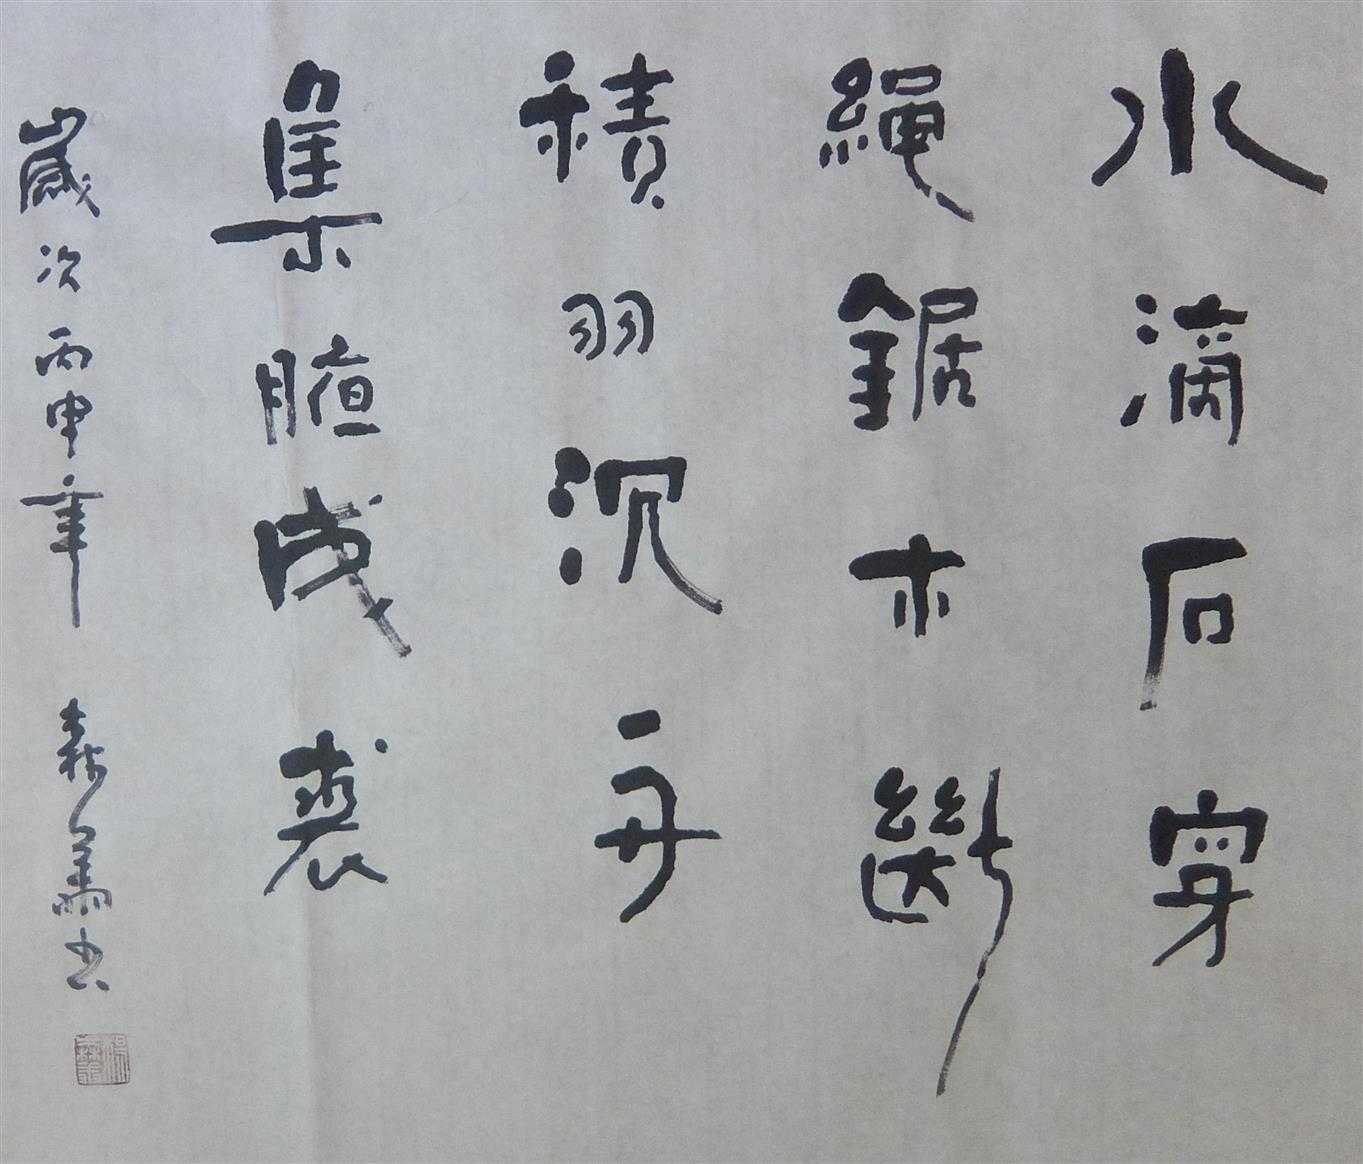 水滴石穿
繩鋸木斷
積羽沉舟
集腋成裘
歲次丙申年 森 書